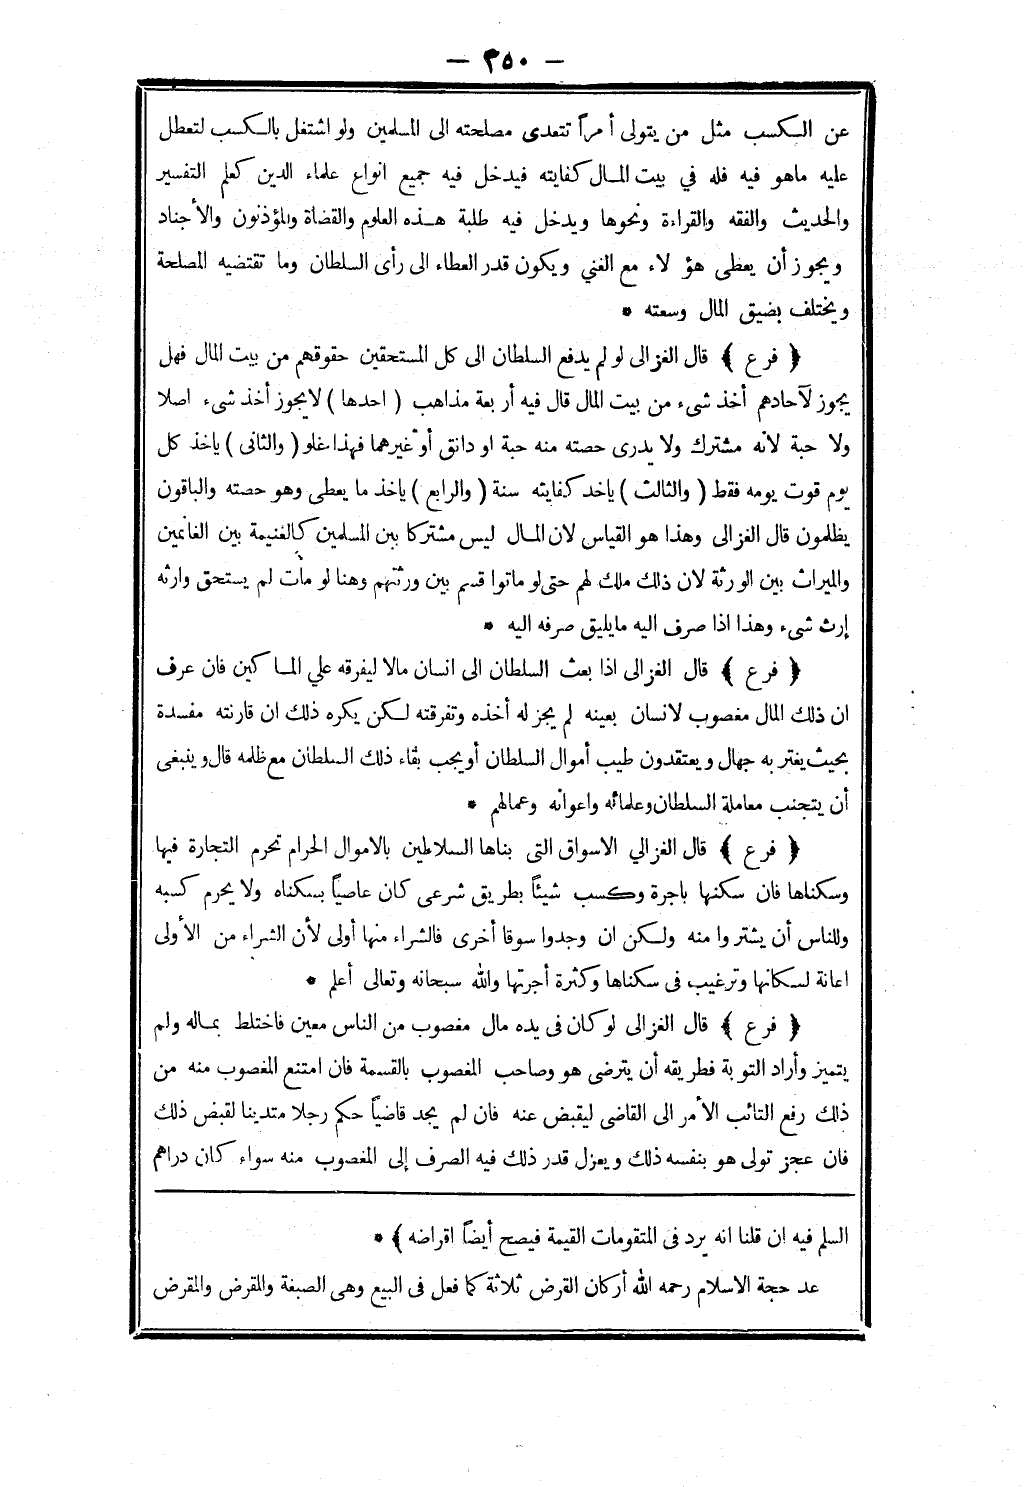 — ٣٥٠ —
عن الكسب مثل من يتولى أمراً تتعدى مصلحته الى المسلمين ولو اشتغل بالكسب لتعطل
عليه ماهو فيه فله في بيت المال كفايته فيدخل فيه جميع انواع علماء الدين كعلم التفسير
والحديث والفقه والقراءة ونحوها ويدخل فيه طلبة هذه العلوم والقضاة والمؤذنون والأجناد
ويجوز أن يعطى هؤلاء مع الغني ويكون قدر العطاء الى رأى السلطان وما تقتضيه المصلحة
ويختلف بضيق المال وسعته *
﴿ فرع ﴾ قال الغزالى لو لم يدفع السلطان الى كل المستحقين حقوقهم من بيت المال فهل
يجوز لآحادهم أخذ شىء من بيت المال قال فيه أربعة مذاهب ( احدها ) لايجوز أخذ شىء اصلا
ولا حبة لانه مشترك ولا يدرى حصته منه حبة او دانق أو غيرهما فهذا غلو ( والثانى ) ياخذ كل
يوم قوت يومه فقط ( والثالث ) ياخد كفايته سنة ( والرابع ) ياخذ ما يعطى وهو حصته والباقون
يظلمون قال الغزالى وهذا هو القياس لان المال ليس مشتركا بين المسلمين كالغنيمة بين الغانمين
والميراث بين الورثة لان ذلك ملك لهم حتى لو ماتوا قسم بين ورثتهم وهنا لو مات لم يستحق وارثه
إرث شىء وهذا اذا صرف اليه مايليق صرفه اليه *
﴿ فرع ﴾ قال الغزالى اذا بعث السلطان الى انسان مالا ليفرقه علي المساكين فان عرف
ان ذلك المال مغصوب لانسان بعينه لم يجز له أخذه وتفرقته لكن يكره ذلك ان قارنته مفسدة
بحيث يغتر به جهال ويعتقدون طيب أموال السلطان أو يجب بقاء ذلك السلطان مع ظلمه قال وينبغى
أن يتجنب معاملة السلطان وعلمائه واعوانه وعمالهم *
﴿ فرع ﴾ قال الغزالي الاسواق التى بناها السلاطين بالاموال الحرام تحرم التجارة فيها
وسكناها فان سكنها باجرة وكسب شيئاً بطريق شرعى كان عاصياً بسكناه ولا يحرم كسبه
وللناس أن يشتروا منه ولكن ان وجدوا سوقا أخرى فالشراء منها أولى لأن الشراء من الأولى
اعانة لسكانها وترغيب فى سكناها وكثرة أجرتها والله سبحانه وتعالى أعلم *
﴿ فرع ﴾ قال الغزالى لو كان فى يده مال مغصوب من الناس معين فاختلط بماله ولم
يتميز وأراد التوبة فطريقه أن يترضى هو وصاحب المغصوب بالقسمة فان امتنع المغصوب منه من
ذلك رفع التائب الأمر الى القاضى ليقبض عنه فان لم يجد قاضياً حكم رجلا متدينا لقبض ذلك
فان عجز تولى هو بنفسه ذلك ويعزل قدر ذلك فيه الصرف إلى المغصوب منه سواء كان دراهم
السلم فيه ان قلنا انه يرد فى المتقومات القيمة فيصح أيضاً اقراضه ﴾ *
عد حجة الاسلام رحمه الله أركان القرض ثلاثة كما فعل فى البيع وهى الصيغة والمقرض والمقرض